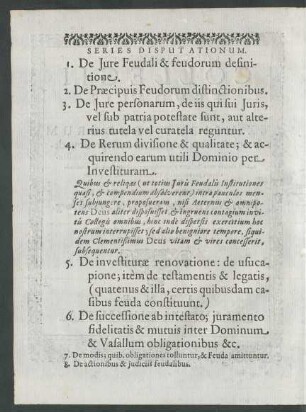 SERIES DISPUTATIONUM.
1. De Jure Feudali & feudorum defini-
tione.
2. De Præcipuis Feudorum distinctionibus.
3. De Jure personarum, de iis qui sui Juris,
vel sub patria potestate sunt, aut alte-
rius tutela vel curatela reguntur.
4. De Rerum divisione & qualitate; & ac-
quirendo earum utili Dominio per
Investituram.
Quibus & reliqua (ut totius Juris Feudalis Institutiones
quasi, & compendium absolveretur) intra pauculos men-
ses subjungere, proposueram, nisi Aeternus & omnipo-
tens Deus aliter disposuisset, & ingruens contagium invi-
tis Collegis omnibus, hinc inde dispersis exercitium hoc
nostrum interrupisset; sed alio benigniore tempore, siqui-
dem Clementissimus Deus vitam & vires concesserit,
subsequentur.
5. De investituræ renovatione: de usuca-
pione; item de testamentis & legatis,
(quatenus & illa, certis quibusdam ca-
sibus feuda constituunt.)
6. De successione ab intestato; juramento
fidelitatis & mutuis inter Dominum
& Vasallum obligationibus &c.
7. De modis; quib. obligationes tolluntur, & Feuda amittuntur.
8. De actionibus & judiciis feudalibus.